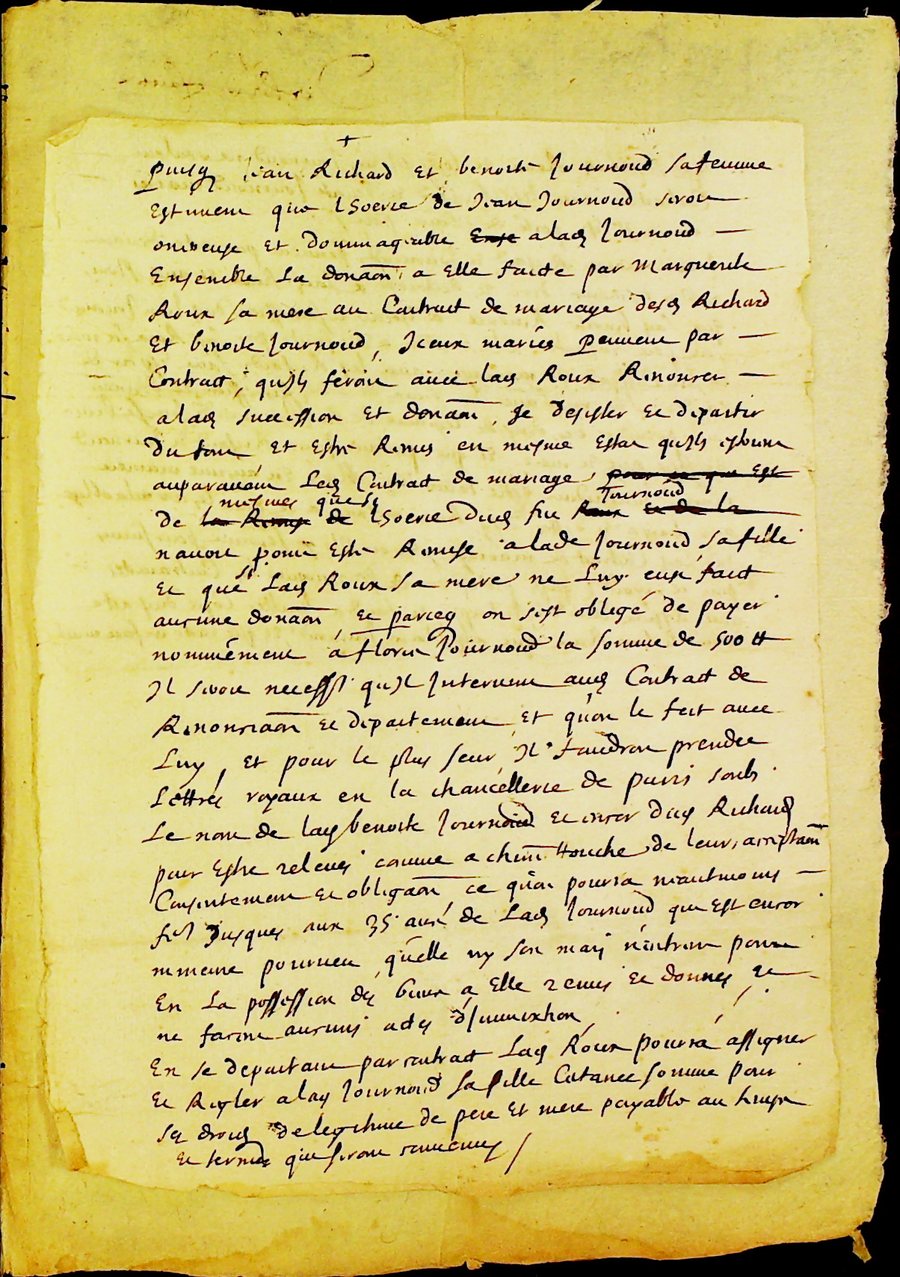 +
puisq Jean Richard et benoite Journoud sa femme
estiment que lhoerie de Jean Journoud seroit
onereuse et dommageable alad Journoud —
Ensemble La donaon a elle faicte par Marguerite
Roux sa mere au Contract de mariage desd Richard
Et benoite Journoud, Iceux mariés peuvent par —
Contract, quils feront avec lad Roux Renoncer —
alad succession et donaon, se desister et départir
du tout et estre Remis en mesme estat quils estoient
auparavant Led Contract de mariage
mesmes que sy Journoud
de lhoerie dud feu
navoit point esté Remise alade Journoud sa fille
et que sy Lad Roux sa mere ne Luy eust faict
aucune donaon, et parceq on sest obligé de payer
nommément a Journoud la somme de 500 tt
Il seroit necessre quil Intervint aud Contract de
Renonciaon et departement, et quon le feit avec
Luy, et pour le plus seur, Il faudroit prendre
Lettres royaux en la chancellerie de paris soubs
Le nom de lad benoite Journoud et encor dud Richard
pour estre relevés comme a chacun touche de leurs acceptaon
Consentement et obligaon ce quon pourra neantmoins —
fe Jusques aux 35 ans de Lad Journoud que est encor
mineure pourveu quelle ny son mary nentrent point
En La possession des biens a elle remis et donnés, et —
ne facent aucuns actes dimmixtion
En se departant par contract Lad Roux pourra assigner
et Regler alad Journoud sa fille Certaine somme pour
ses droits de legitime de pere et mere payable au temps
et termes que seront convenus /